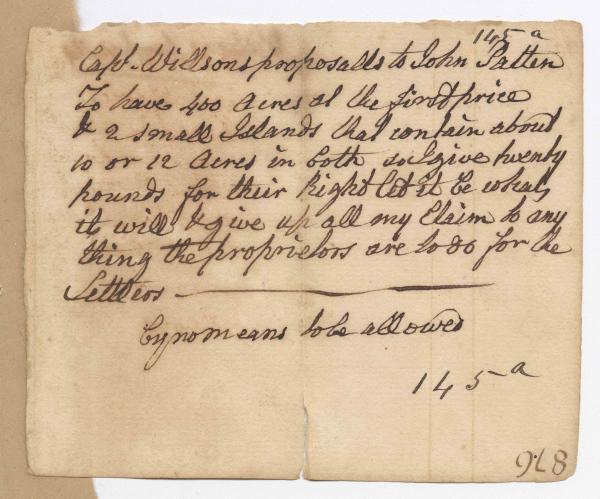 145 a
Capt. Willsons proposalls to John Patten
To have 400 Acres at the first price
& 2 small Islands that contain about
10 or 12 Acres in both so I give twenty
pounds for their Right let it be what
it will & give up all my Claim to any
thing the proprietors are to do for the
Settlers
by no means to be allowed
145 a